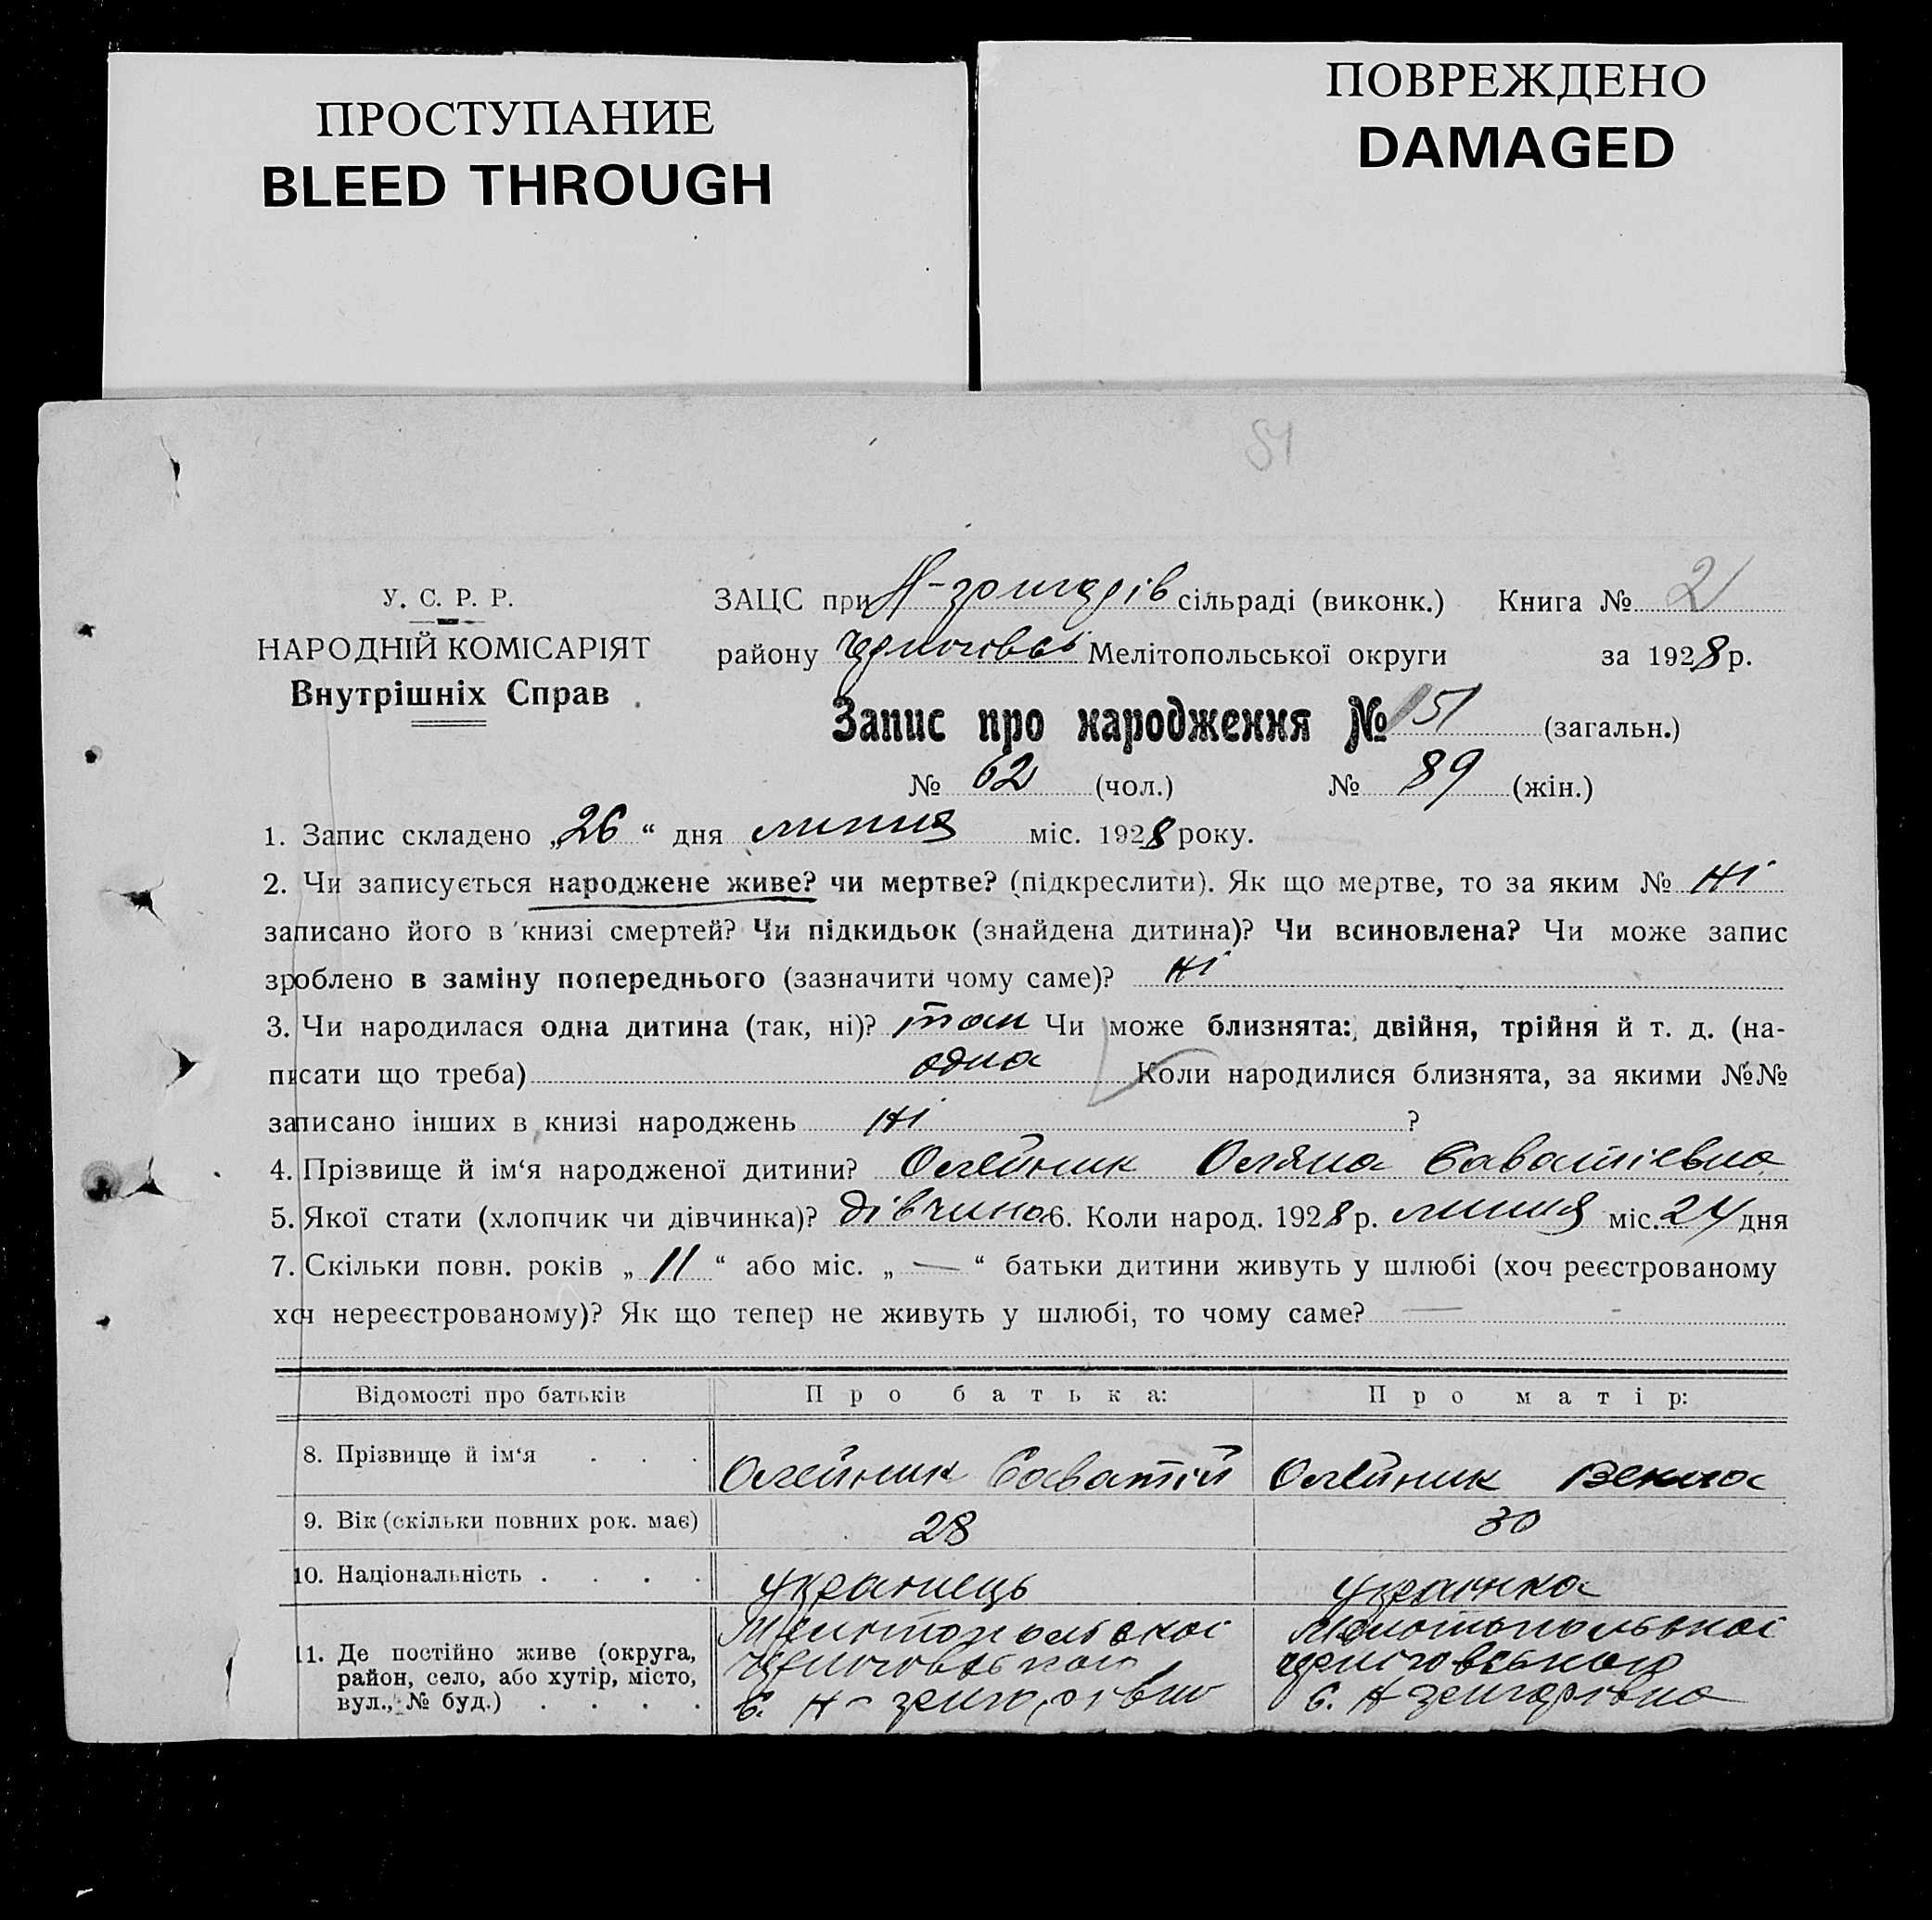 ПРОСТУПАНИЕ
BLEED THROUGH
ПОВРЕЖДЕНО
DAMAGED
51
У. С. Р. Р.
НАРОДНІЙ КОМІСАРІЯТ
Внутрішніх Справ
ЗАЦС при сільраді (виконк.) Книга № 2
району Мелітопольської округи за 1928 р.
Запис про народження № 151 (загальн.)
№ 62 (чол.) № 89 (жін.)
1. Запис складено „26“ дня липня міс. 1928 року.
2. Чи записується народжене живе? чи мертве? (підкреслити). Як що мертве, то за яким № ні
записано його в книзі смертей? Чи підкидьок (знайдена дитина)? Чи всиновлена? Чи може запис
зроблено в заміну попереднього (зазначити чому саме)? ні
3. Чи народилася одна дитина (так, ні)? так Чи може близнята: двійня, трійня й т. д. (на-
писати що треба) одна Коли народилися близнята, за якими №№
записано інших в книзі народжень ні ?
4. Прізвище й ім‘я народженої дитини? Олейник Оляна Саватіевна
5. Якої стати (хлопчик чи дівчинка)? дівчина 6. Коли народ. 1928 р. липня міс. 24 дня
7. Скільки повн. років „11“ або міс. „—“ батьки дитини живуть у шлюбі (хоч реєстрованому
хоч нереєстрованому)? Як що тепер не живуть у шлюбі, то чому саме? —
Відомості про батьків Про батька: Про матір:
8. Прізвище й ім‘я . . . Олейник Саватій Олейник
9. Вік (скільки повних рок. має) 28 30
10. Національність . . . . українець українка
11. Де постійно живе (округа,
район, село, або хутір, місто,
вул., № буд.) . . . .
Мелитопольскої
Мелитопольскої